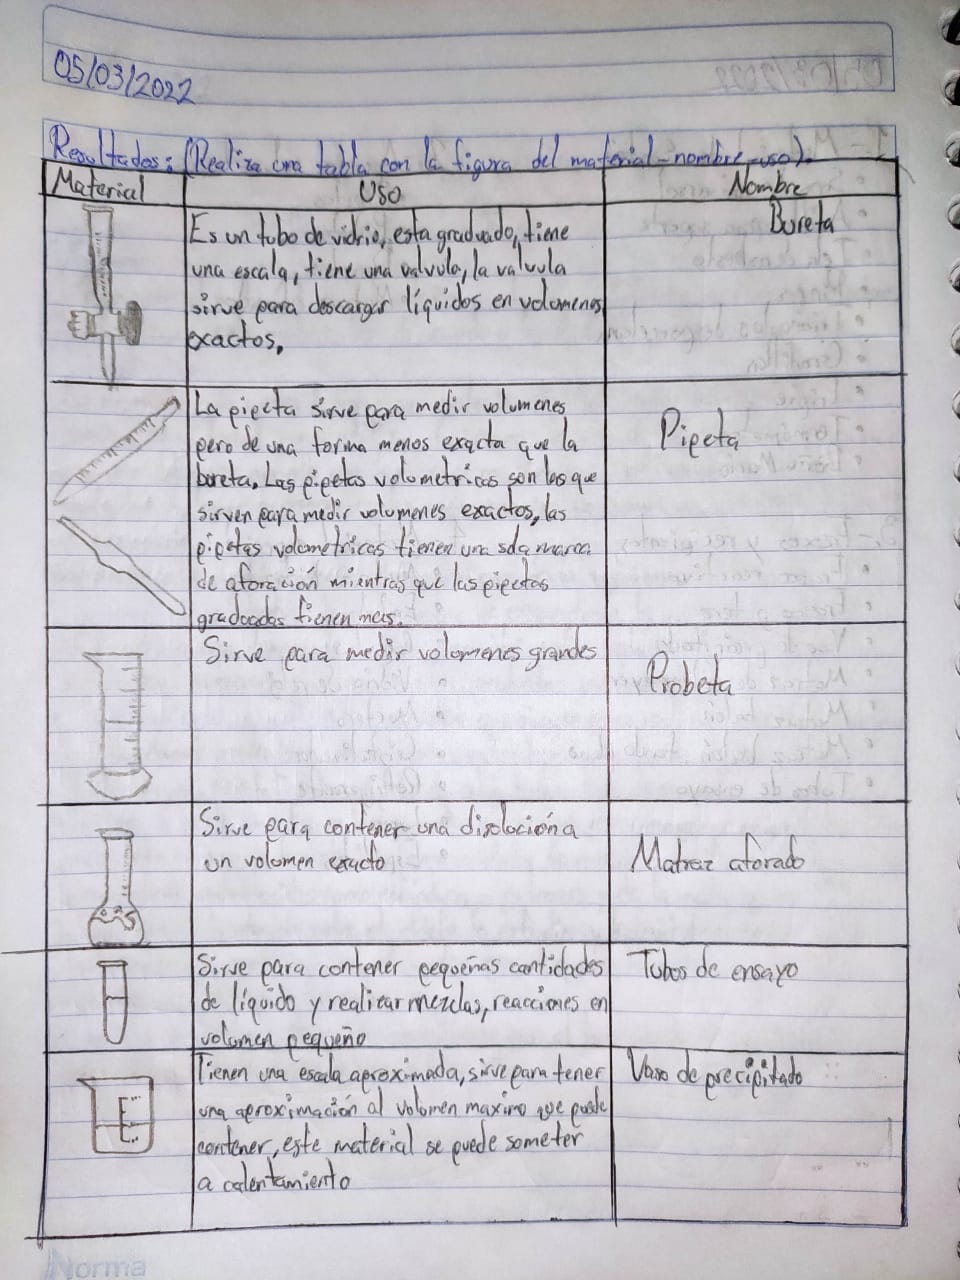 05/03/2022
Resultados: (Realiza una tabla con la figura del material-nombre-uso).
Material
Uso
Nombre
Es un tubo de vidrio, esta graduado, tiene
una escala, tiene una valvula, la valvula
sirve para descargar líquidos en volumenes
exactos.
Bureta
La pipeta sirve para medir volumenes
pero de una forma menos exacta que la
bureta. Las pipetas volumetricas son las que
sirven para medir volumenes exactos, las
pipetas volumetricas tienen una sola marca
de aforación mientras que las pipetas
graduadas tienen mas.
Pipeta
Sirve para medir volumenes grandes
Probeta
Sirve para contener una disolución a
un volumen exacto
Matraz aforado
Sirve para contener pequeñas cantidades
de líquido y realizar mezclas, reacciones en
volumen pequeño
Tubos de ensayo
Tienen una escala aproximada, sirve para tener
una aproximación al volumen maximo que puede
contener, este material se puede someter
a calentamiento
Vaso de precipitado
Norma